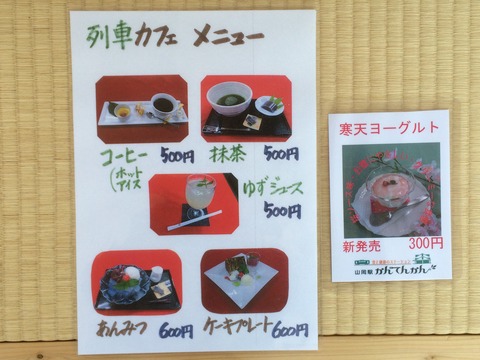 列車カフェ メニュー
コーヒー 500円
(ホット
アイス
抹茶 500円
ゆずジュース
500円
あんみつ 600円
ケーキプレート 600円
寒天ヨーグルト
新発売 300円
山岡駅 かんてんかん